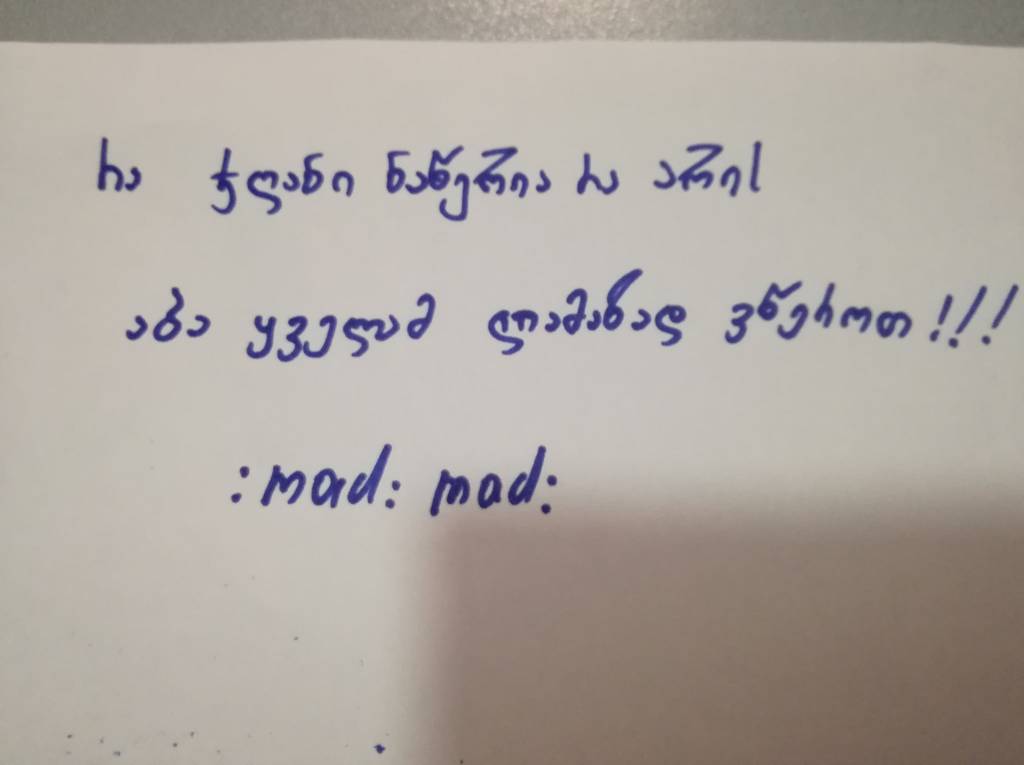 რა ჯღანი ნაწერია რა არის
აბა ყველამ ლამაზად ვწეროთ!!!
:mad: mad: